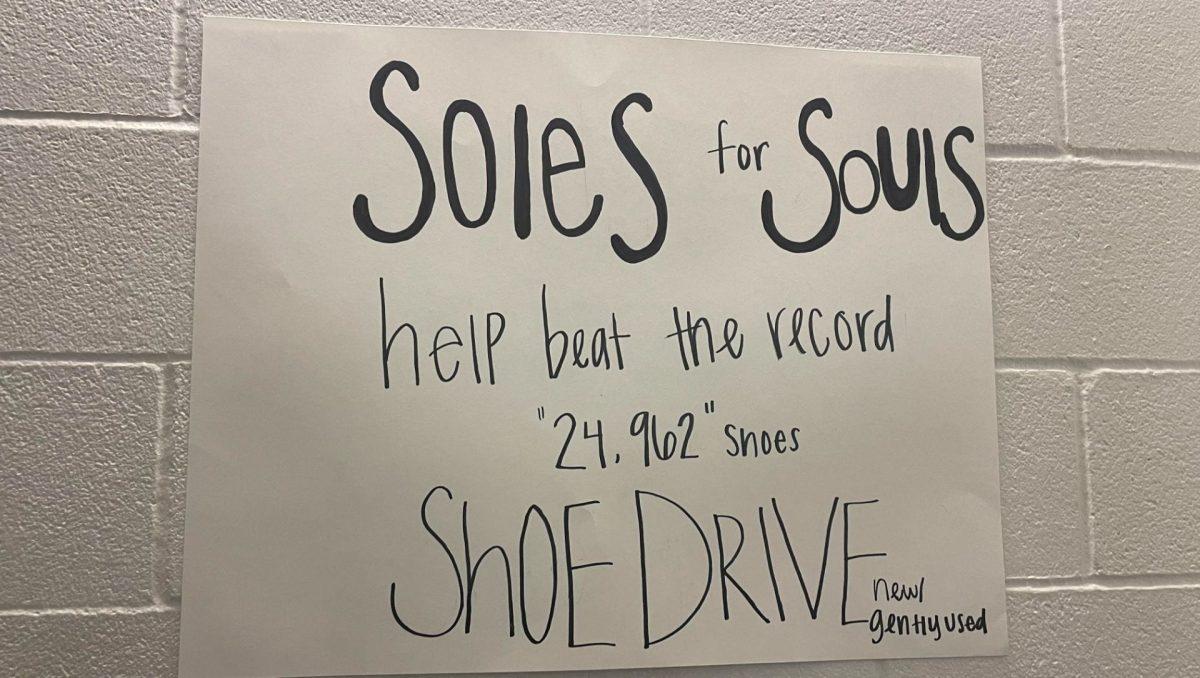 Soles for Souls
help beat the record
"24,962" shoes
ShOE DRIVE
new/
gently used